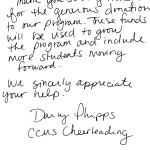 Thank you so very much
for the generous donation
to our program. These funds
will be used to grow
the program and include
more students moving
forward.
We sincerly appreciate
your help.
Darcy Phipps
CCMS Cheerleading